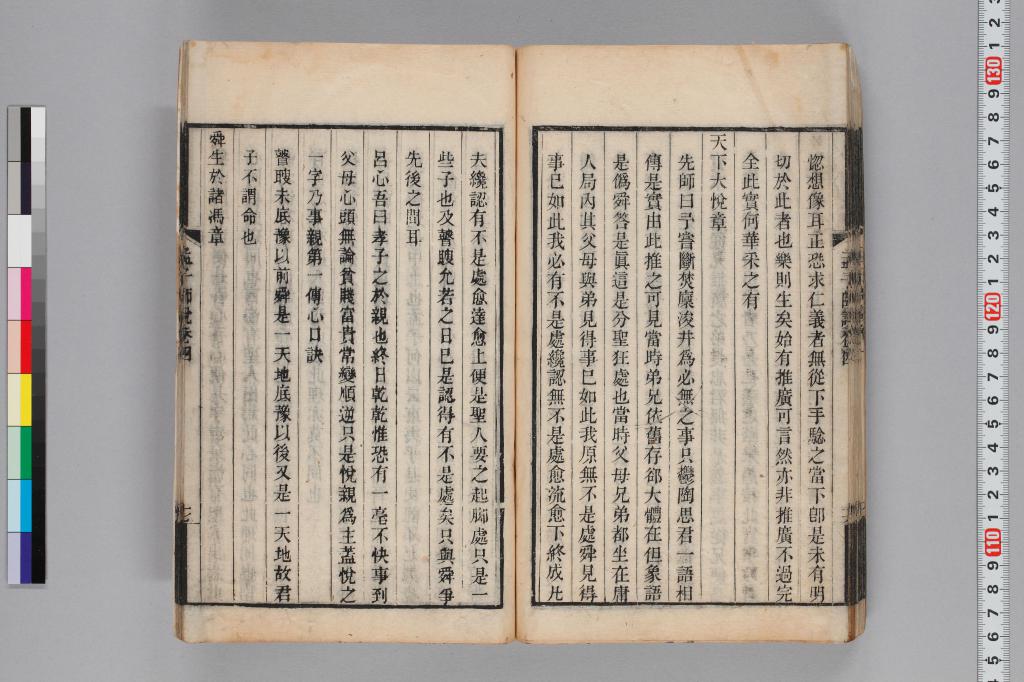 惚想像耳正恐求仁義者無從下手驗之當下卽是未有明
切於此者也樂則生矣始有推廣可言然亦非推廣不過完
全此實何華采之有
天下大悅章
先師曰予嘗斷焚廩浚井爲必無之事只鬱陶思君一語相
傳是實由此推之可見當時弟兄依舊存郤大體在但象語
是僞舜答是眞這是分聖狂處也當時父母兄弟都坐在庸
人局內其父母與弟見得事已如此我原無不是處舜見得
事已如此我必有不是處纔認無不是處愈流愈下終成凡
夫纔認有不是處愈達愈上便是聖人要之起脚處只是一
些子也及瞽瞍允若之日已是認得有不是處矣只與舜爭
先後之間耳
呂心吾曰孝子之於親也終日乾乾惟恐有一毫不快事到
父母心頭無論貧賤富貴常變順逆只是悅親爲主蓋悅之
一字乃事親第一傳心口訣
瞽瞍未底豫以前舜是一天地底豫以後又是一天地故君
子不謂命也
舜生於諸馮章
孟子師說卷四